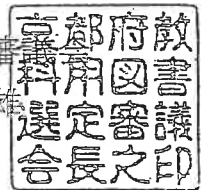 京都府教
科用図書
選定審議
会長之印